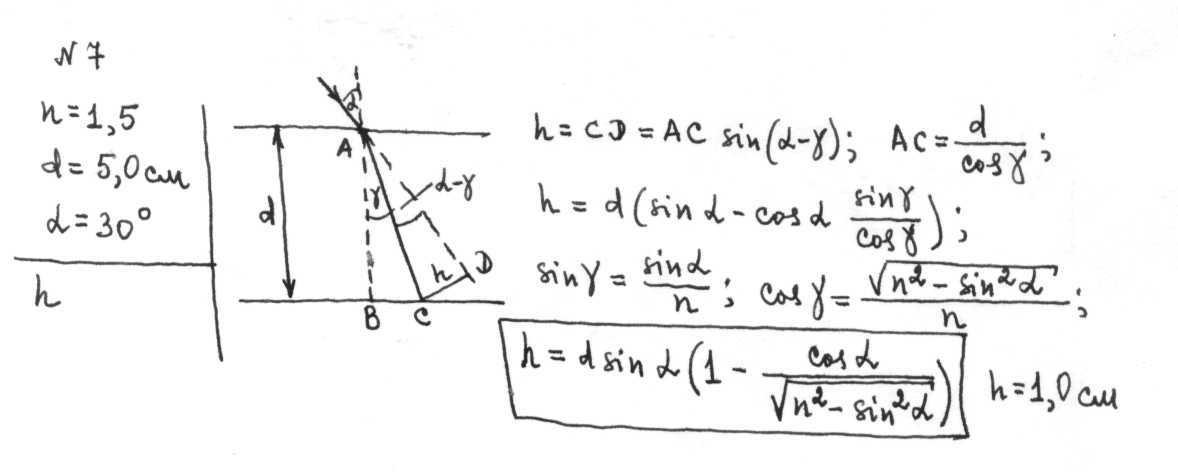 N 7
n = 1,5
d = 5,0 см
α = 30°
h
α
A
γ
α-γ
d
h
D
B
C
h = CD = AC sin(α-γ); AC = d/cos γ;
h = d (sin α - cos α sin γ/cos γ);
sin γ = sin α/n; cos γ = √(n² - sin² α)/n;
h = d sin α (1 - cos α/√(n² - sin² α)) h = 1,0 см